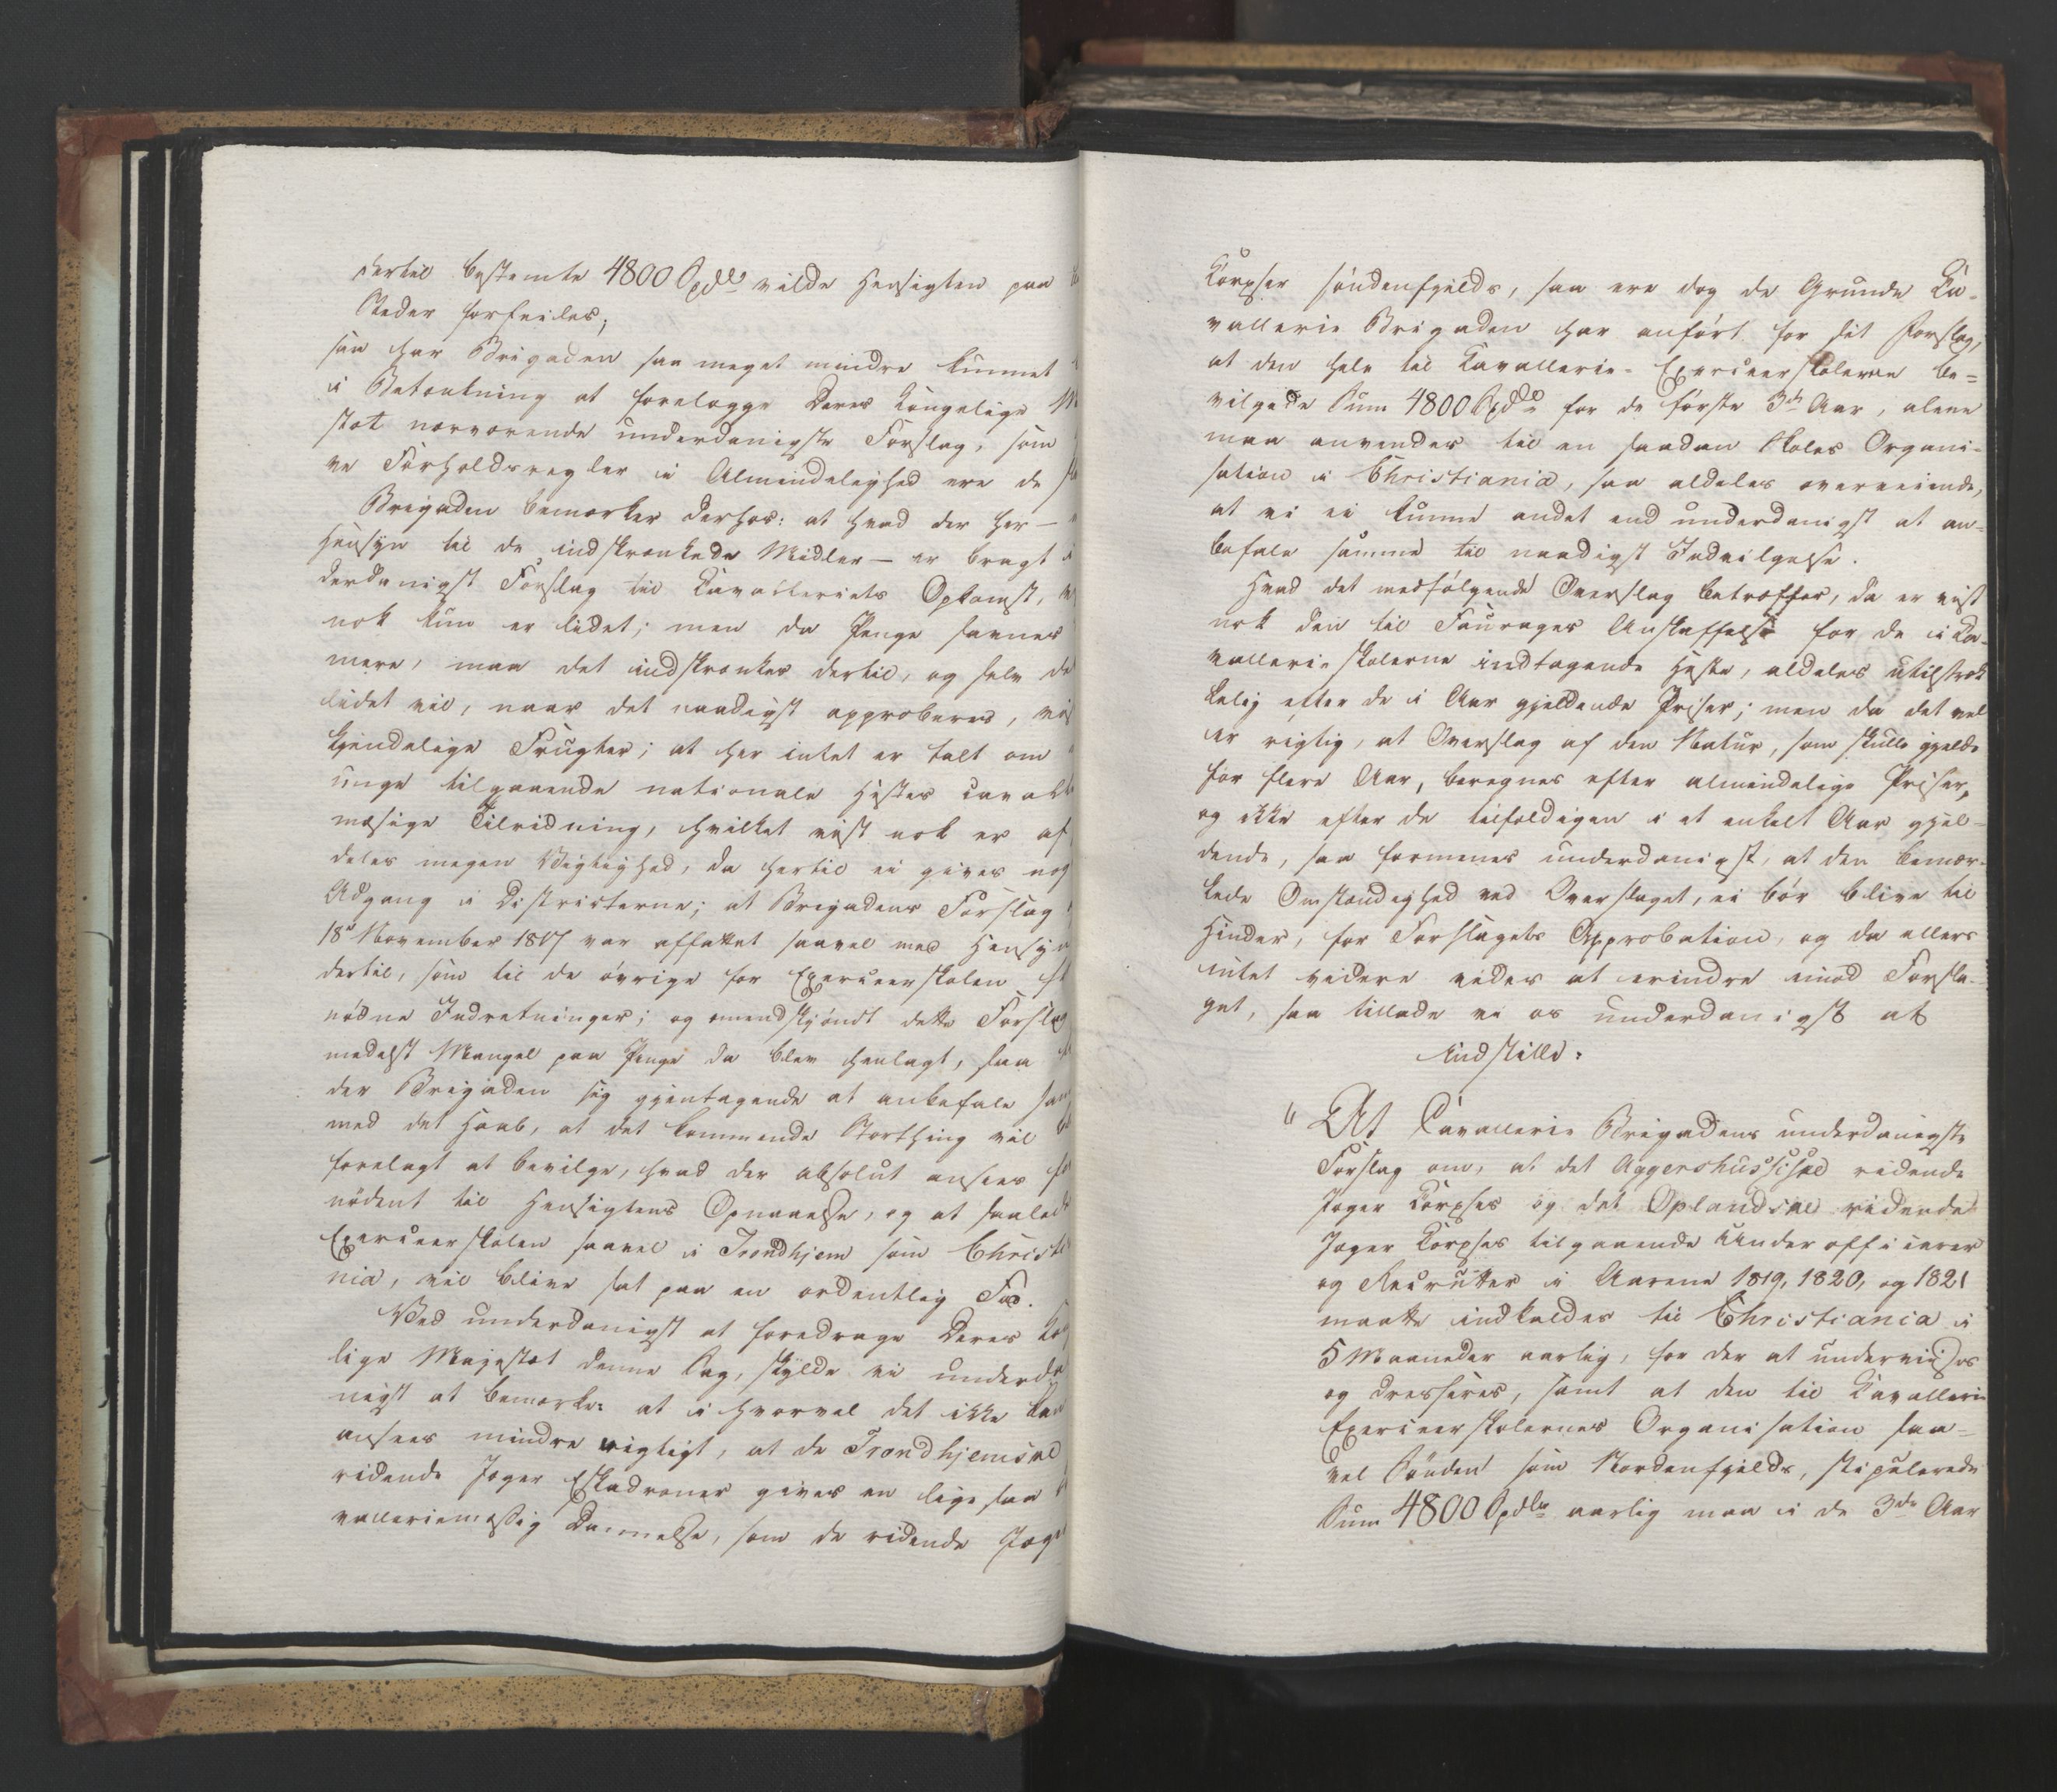 dertil bestemte 4800 Spdlr vilde Hensigten paa
Steder forfeiles;
saa har Brigaden saa meget mindre kunnet
i Betænkning at forelægge Deres Kongelige M
stæt nærværende underdanigste Forslag, som
ve Forholdsregler i Almindelighed ere de
Brigaden bemærker derhos: at hvad der her –
Hensyn til de indskrænkede Midler – er bragt i
derdanigst Forslag til Kavalleriets Opkomst,
nok kun er lidet; men da Penge savnes
mere, maa det indskrænkes dertil, og selv de
lidet vil, naar det naadigst approberes, vis
kjendelige Frugter; at her intet er talt om
unge tilgaaende nationale Hestes cavalle
mæsige Tilridning, hvilket vist nok er af
deles megen Vigtighed, da hertil ei gives nog
Adgang i Districterne; at Brigadens Forslag
18de November 1817 var affattet saavel med Hensyn
dertil, som til de övrige for Exerceerskolen
nödne Indretninger; og omendskjöndt dette Forslag
medelst Mangel paa Penge da blev henlagt, saa
der Brigaden sig gjentagende at anbefale sam
med det Haab, at det kommende Storthing vil
forelagt at bevilge, hvad der absolut ansees for
nödent til Hensigtens Opnaaelse, og at saalede
Exerceerskolen saavel i Trondhjem som Christi
nia, vil blive sat paa en ordentlig Fod.
Ved underdanigst at foredrage Deres Kong
lige Majestæt denne Sag, skylde vi underda
nigst at bemærke: at i hvorvel det ikke kan
ansees mindre vigtigt, at de Trondhjemske
ridende Jæger Eskadroner gives en ligesaa
vallerimæssig Dannelse, som de ridende Jæge
Korpser söndenfjelds, saa ere dog de Grunde Ka-
vallerie Brigaden har anfört for sit Forslag,
at den hele til Kavallerie-Exerceerskolerne be=
vilgede Sum 4800 Spdlr for de förste 3de Aar, alene
maa anvendes til en saadan Skoles Organi-
sation i Christiania, saa aldeles overveiende,
at vi ei kunne andet end underdanigst at an-
befale samme til naadigst Indvilgelse.
Hvad det medfölgende Overslag betræffer, da er vist
nok den til Fourages Anskaffelse for de i Ka-
vallerieskolerne indtagende Heste, aldeles utilstræk
kelig efter de i Aar gjeldende Priser; men da det vel
er rigtig, at Overslag af den Natur, som skulle gjelde
for flere Aar, beregnes efter almindelige Priser,
og ikke efter de tilfældigen i et enkelt Aar gjel-
dende, saa formenes underdanigst, at den bemær-
kede Omstændighed ved Overslaget, ei bör blive til
Hinder, for Forslagets Approbation, og da ellers
intet videre vides at erindre imod Forsla-
get, saa tillade vi os underdanigst at
indstille:
" At Cavallerie Brigadens underdanigste
Forslag om, at det Aggershussiske ridende
Jæger Korpses og det Oplandske ridende
Jæger Korpses tilgaaende Underofficerer
og Recrutter i Aarene 1819, 1820, og 1821
maatte indkaldes til Christiania i
5 Maaneder aarlig, for der at undervises
og dresseres, samt at den til Kavallerie
Exerceerskolernes Organisation saa=
vel Sönden som Nordenfjelds, stipulerede
Sum 4800 Spdlr aarlig maa i de 3de Aar